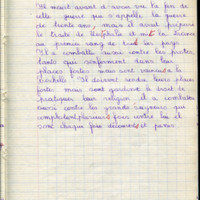 Il meurt avant d'avoir vu la fin de
cette guerre qui s'appelle la guerre
de trente ans, mais il avait préparé
le traité de et mit la France
au premier rang de tous les pays.
Il a combattu aussi contre les protes
tants qui s'enferment dans leur
places fortes mais sont vaincus à la
Rochelle. Ils doivent rendre leurs places
fortes mais sont gardent le droit de
pratiquer leur religion il a combattu
aussi contre les grands seigneurs qui
complotent plusieurs fois contre lui il
sont chaque fois découverts et punis